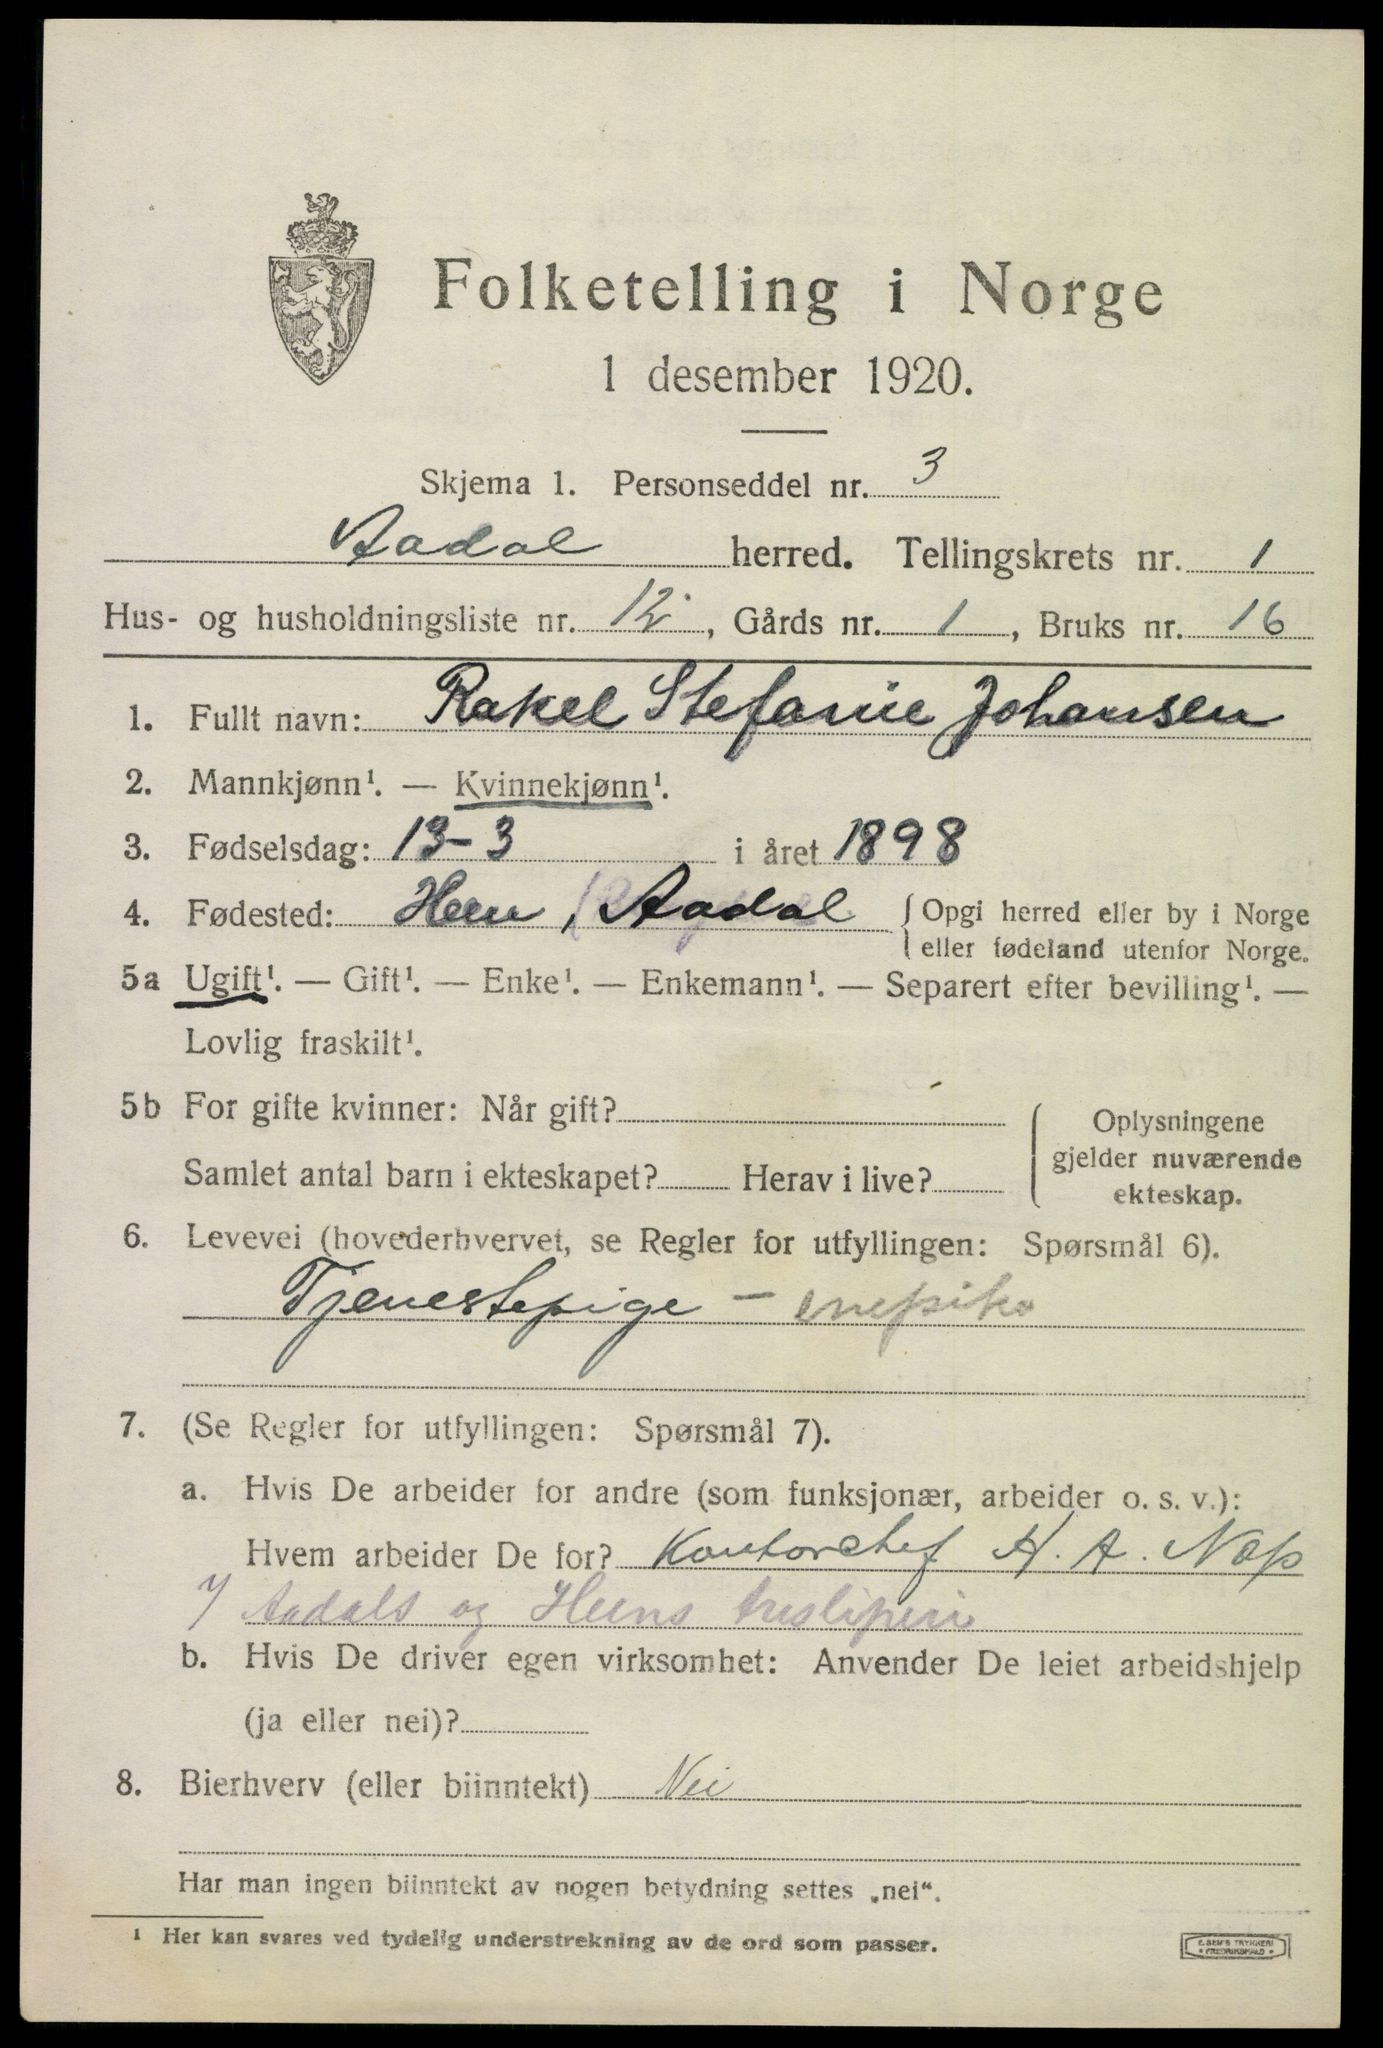 Folketelling i Norge
1 desember 1920.
Skjema 1. Personseddel nr. 3
Aadal herred. Tellingskrets nr. 1
Hus- og husholdningsliste nr. 12, Gårds nr. 1, Bruks nr. 16
1. Fullt navn: Rakel Stefanie Johansen
2. Mannkjønn¹. — Kvinnekjønn¹.
3. Fødselsdag: 13-3 i året 1898
4. Fødested: Heen, Aadal { Opgi herred eller by i Norge
eller fødeland utenfor Norge.
5a Ugift¹. — Gift¹. — Enke¹. — Enkemann¹. — Separert efter bevilling¹. —
Lovlig fraskilt¹.
5b For gifte kvinner: Når gift?
Samlet antal barn i ekteskapet? Herav i live?
{ Oplysningene
gjelder nuværende
ekteskap.
6. Levevei (hovederhvervet, se Regler for utfyllingen: Spørsmål 6).
Tjenestepige – enepike
7. (Se Regler for utfyllingen: Spørsmål 7).
a. Hvis De arbeider for andre (som funksjonær, arbeider o. s. v.):
Hvem arbeider De for? Kontorchef H. A. Næss
Aadals og Heens tresliperi
b. Hvis De driver egen virksomhet: Anvender De leiet arbeidshjelp
(ja eller nei)?
8. Bierhverv (eller biinntekt) Nei
Har man ingen biinntekt av nogen betydning settes „nei“.
¹ Her kan svares ved tydelig understrekning av de ord som passer.
E. SEM'S TRYKKERI
FREDRIKSHALD